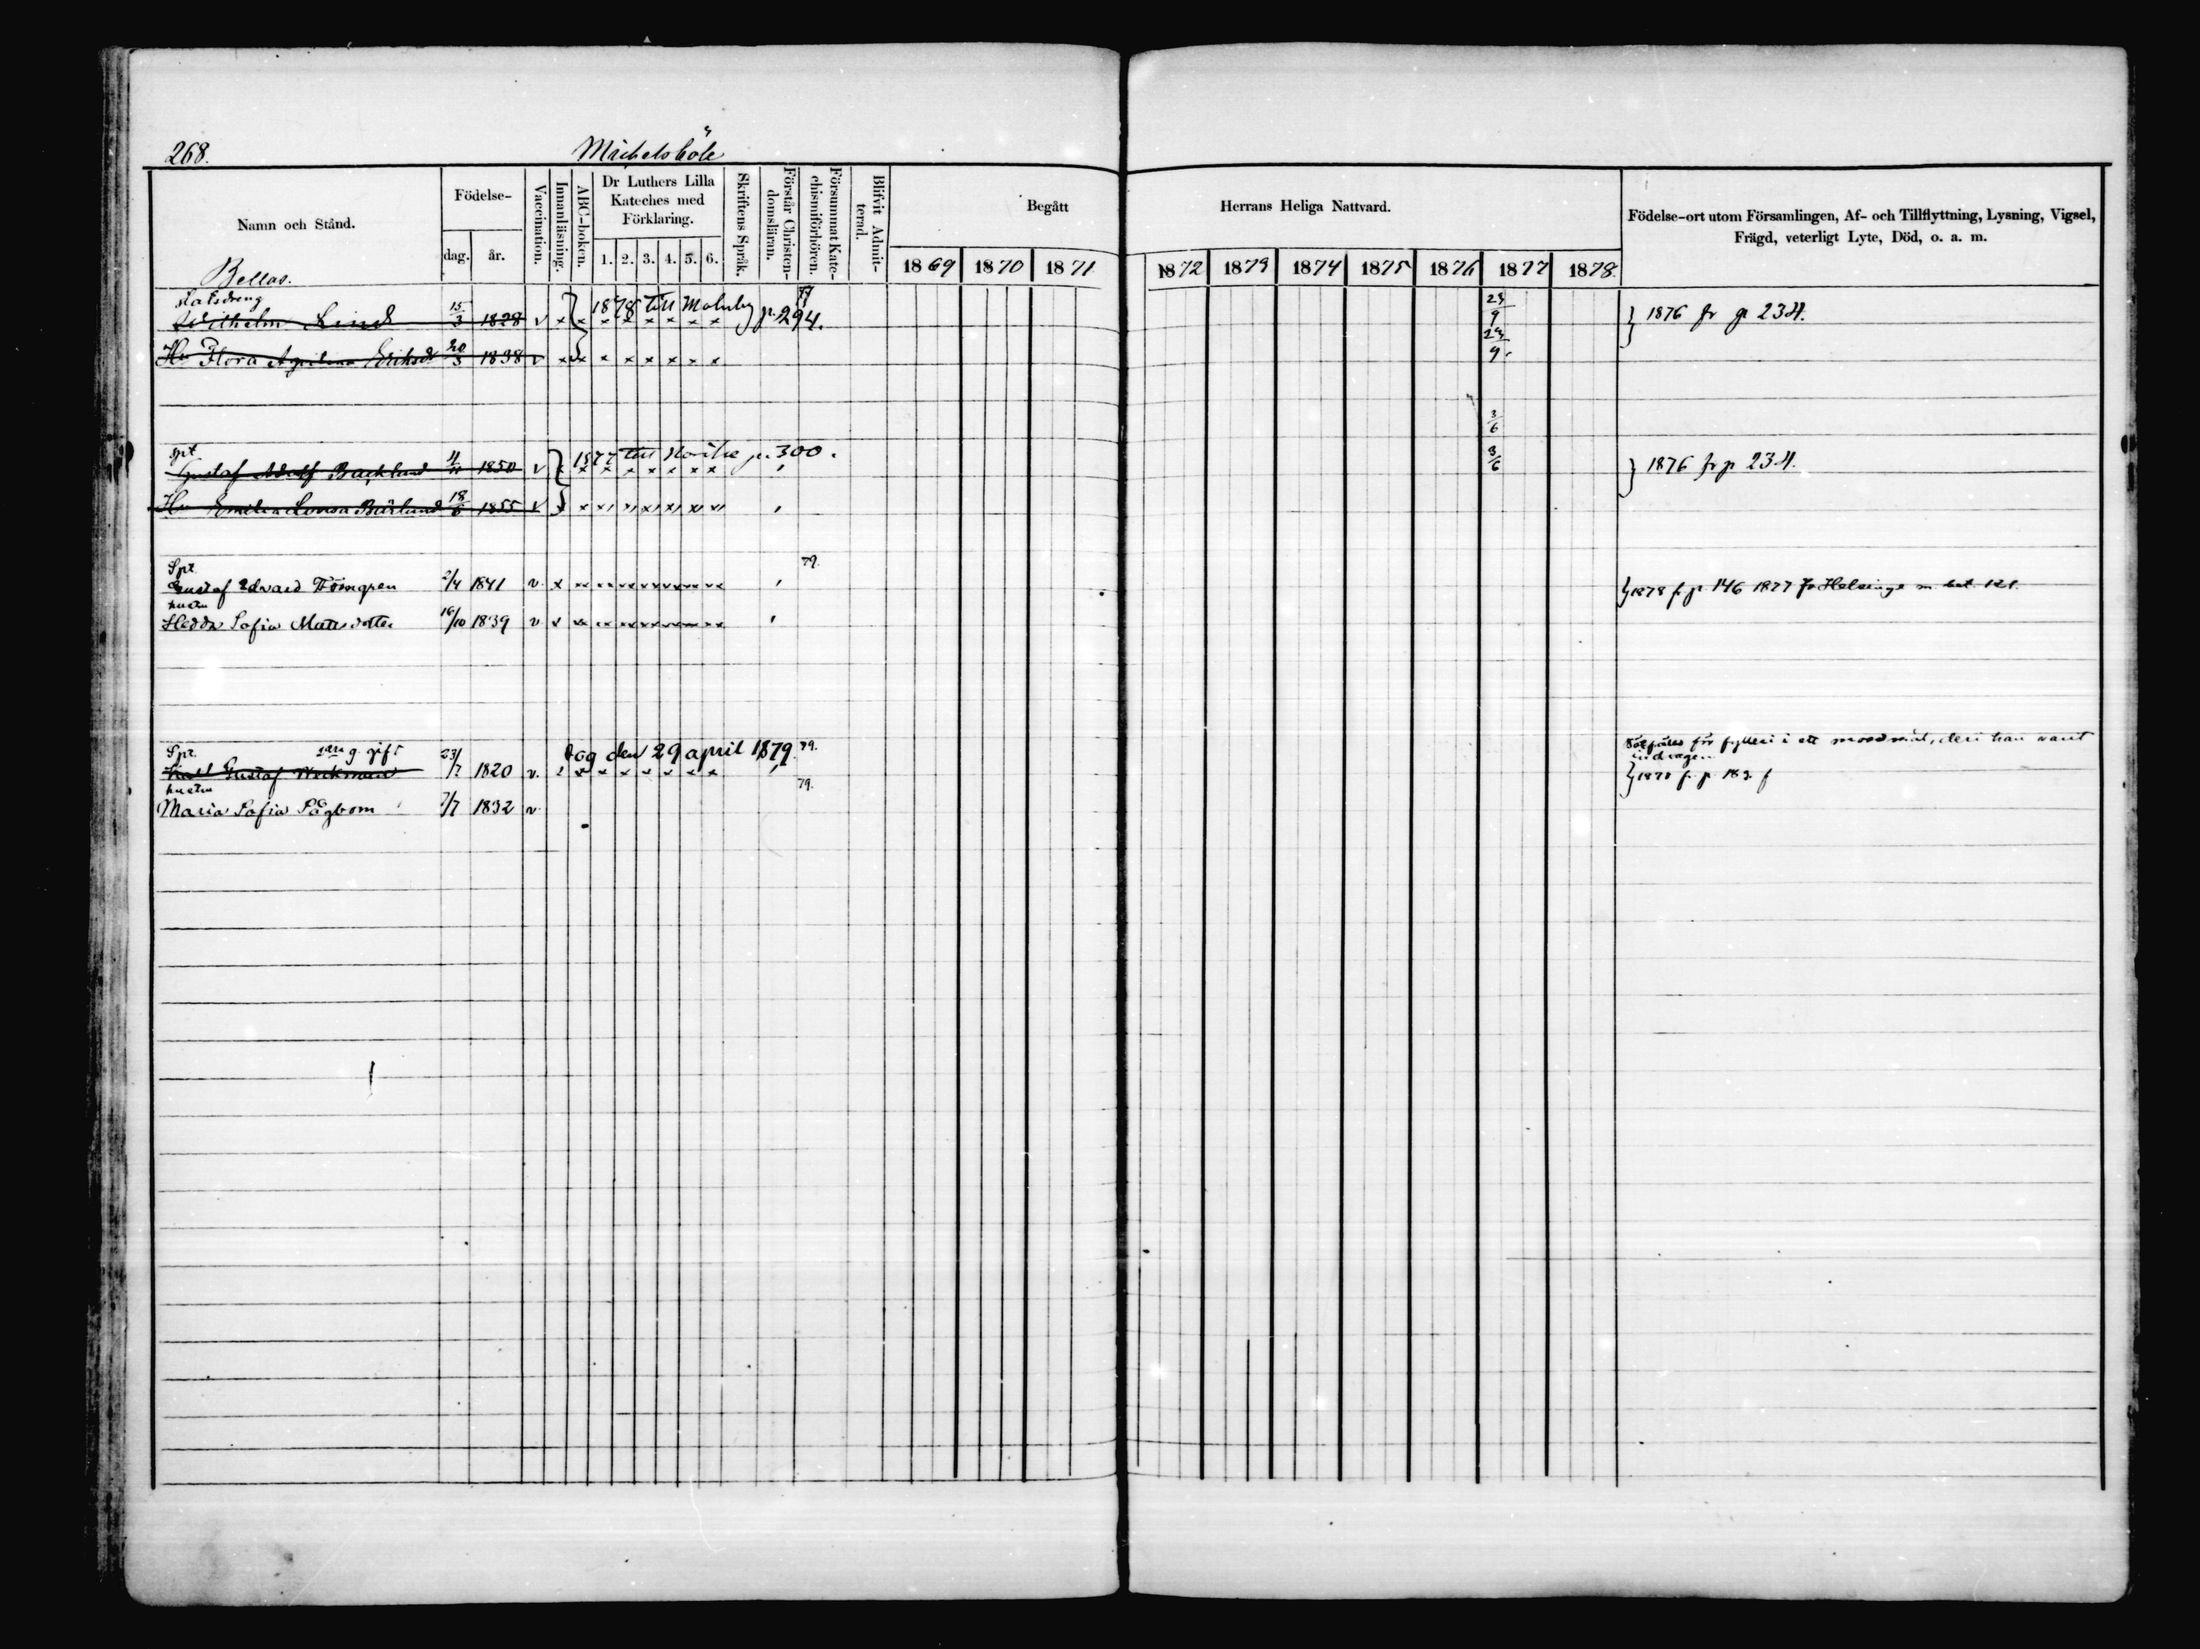 268.
Michelsböle
Namn och Stånd.
Födelse-
dag.
år.
Vaccination.
Innanläsning.
ABC-boken.
Dr Luthers Lilla
Kateches med
Förklaring.
1. 2. 3. 4. 5. 6.
Skriftens Språk.
Förstår Christen-
domsläran.
Försummat Kate-
chismiförhören.
Blifvit Admit-
terad.
Begått
Herrans Heliga Nattvard.
1869 1870 1871
1872 1873 1874 1875 1876 1877 1878.
Födelse-ort utom Församlingen, Af- och Tillflyttning, Lysning, Vigsel,
Frägd, veterligt Lyte, Död, o. a. m.
Bellas.
statsdreng
Wilhelm Lind 15/3 1828 v 1878 till Malmby p. 294. 23/9 } 1876 fr p 234.
Hu Flora Eriksd 20/3 1838 v 23/9
3/6
spt
Gustaf Adolf Backlund 1850 v 1877 till p. 300. 3/6 } 1876 fr p 234.
Hu Emilia Lovisa 18/6 1855 v
Spt. 79.
Gustaf Edvard Törngren 2/4 1841 v. } 1878 fr p. 146 1877 fr Helsinge m. bet. 121.
hustru
Hedda Sofia Mattsdotter 16/10 1839 v
Spt. g. gift dog den 29 april 1879. 79.
Gustaf 23/7 1820 v.
för fylleri i ett deri han varit
indragen.
hustru 79.
Maria Sofia Sågbom 7/7 1832 v.